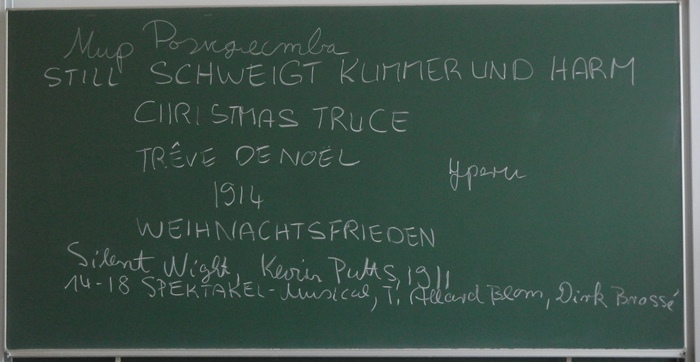 Мир Рождества
STILL SCHWEIGT KUMMER UND HARM
CHRISTMAS TRUCE
TRÊVE DE NOËL
Ypern
1914
WEIHNACHTSFRIEDEN
Silent Night, Kevin Putts, 1911
14-18 SPEKTAKEL-Musical, T. Allard Blom, Dirk Brossé